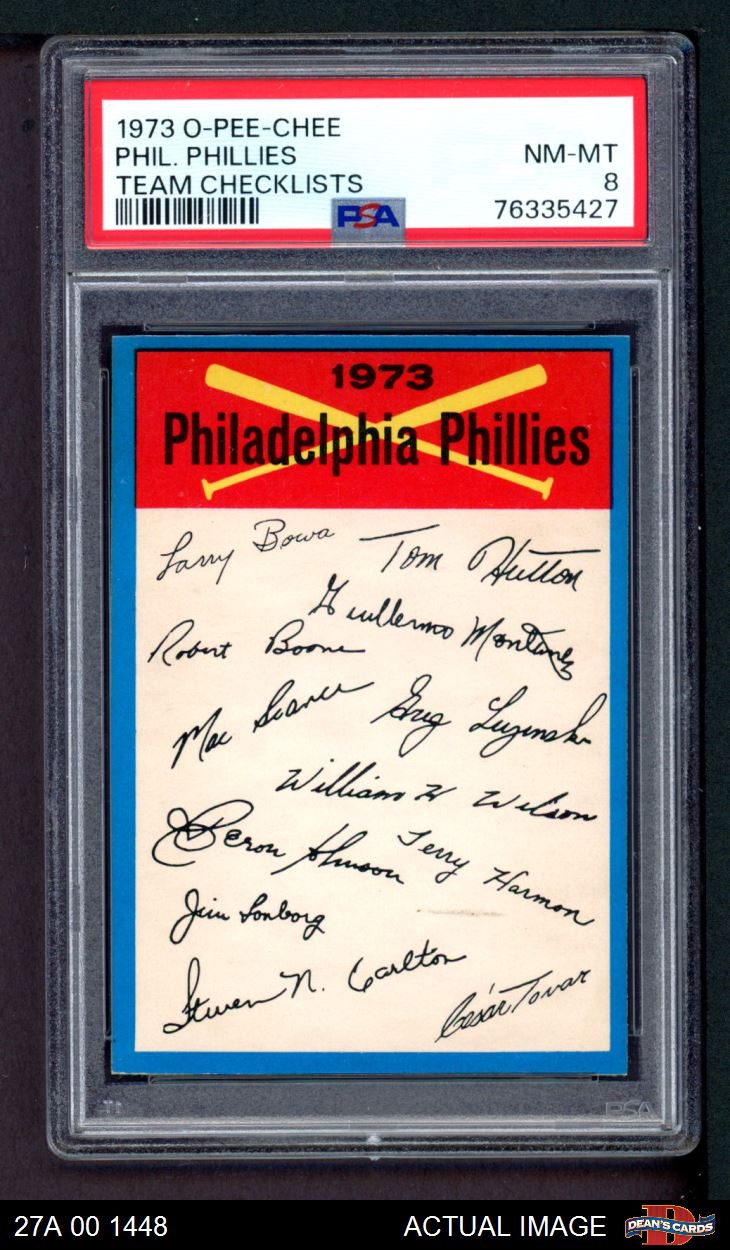 1973 O-PEE-CHEE
PHIL. PHILLIES
NM-MT
TEAM CHECKLISTS
8
PSA
76335427
1973
Philadelphia Phillies
Larry Bowa
Tom Hutton
Guillermo Montanez
Robert Boone
Mac Scarce
Greg Luzinski
William H Wilson
Deron Johnson
Terry Harmon
Jim Lonborg
Steven N. Carlton
César Tovar
PSA
27A 00 1448
ACTUAL IMAGE
DEAN'S CARDS